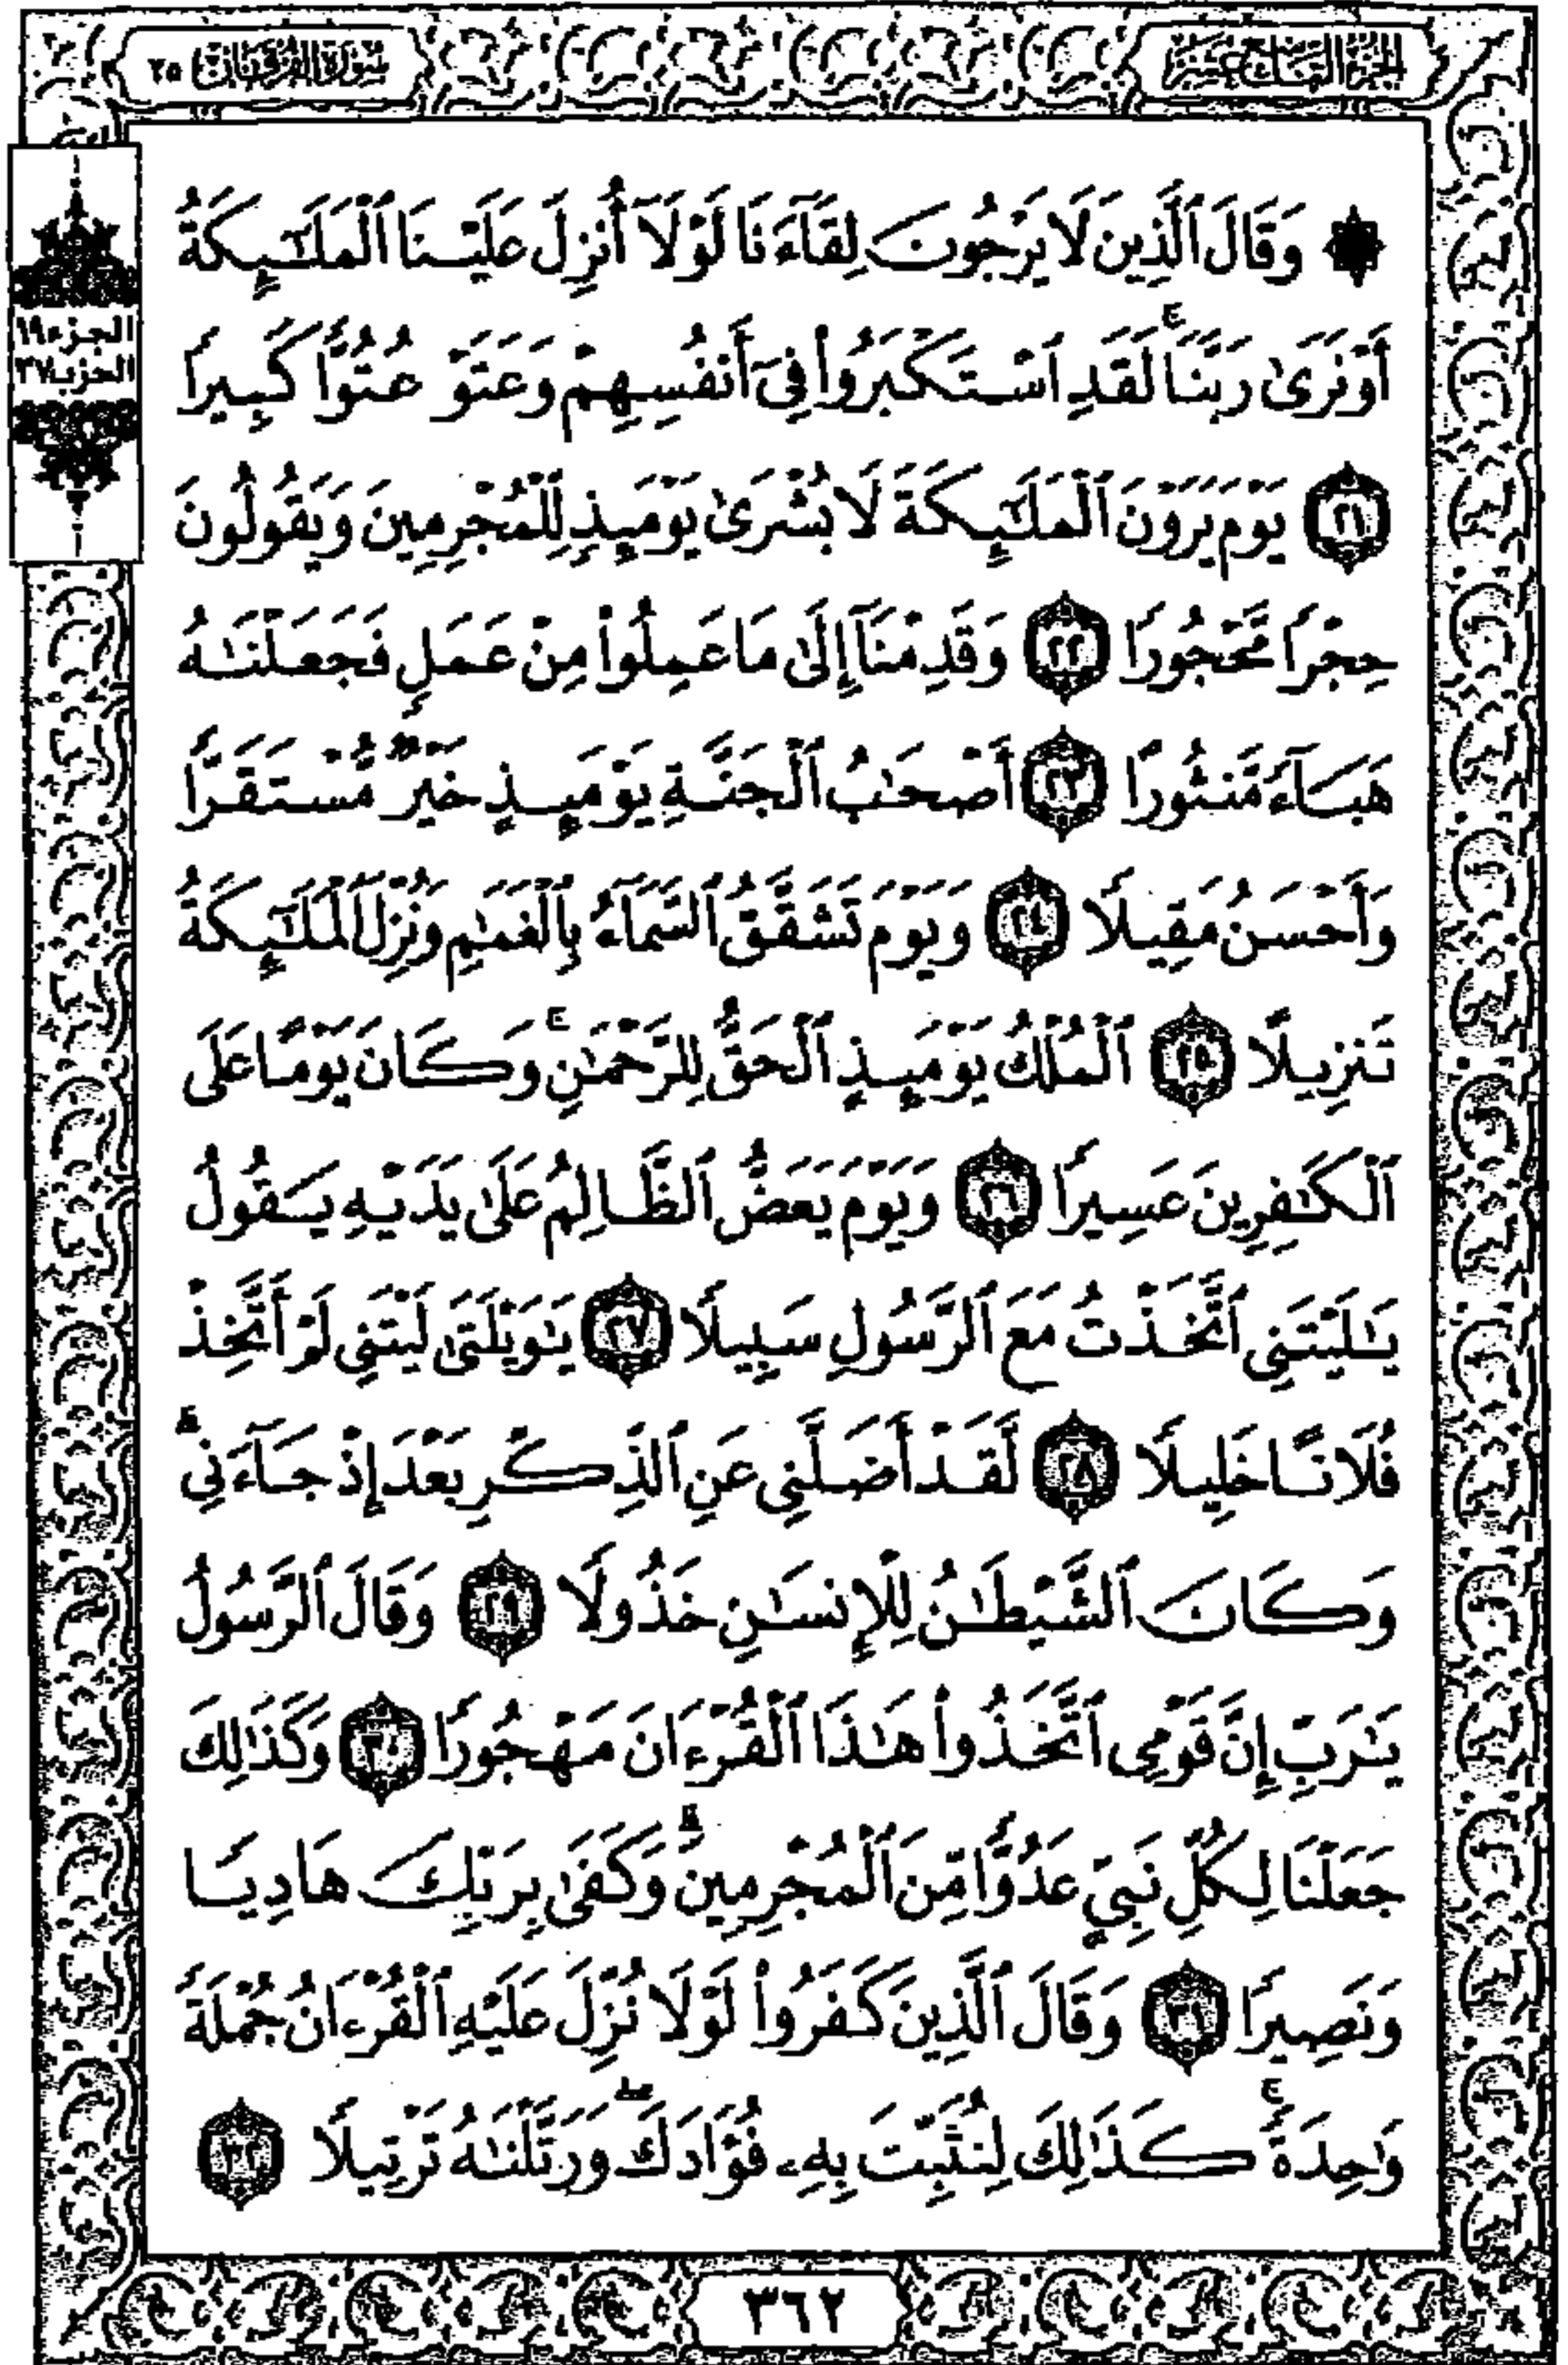 الجزء التاسع عشر
سورة الفرقان ٢٥
الجزء ١٩
الحزب ٣٧
۞ وَقَالَ ٱلَّذِينَ لَا يَرْجُونَ لِقَآءَنَا لَوْلَآ أُنزِلَ عَلَيْنَا ٱلْمَلَٰٓئِكَةُ
أَوْ نَرَىٰ رَبَّنَا ۗ لَقَدِ ٱسْتَكْبَرُوا۟ فِىٓ أَنفُسِهِمْ وَعَتَوْ عُتُوًّا كَبِيرًا
٢١ يَوْمَ يَرَوْنَ ٱلْمَلَٰٓئِكَةَ لَا بُشْرَىٰ يَوْمَئِذٍ لِّلْمُجْرِمِينَ وَيَقُولُونَ
حِجْرًا مَّحْجُورًا ٢٢ وَقَدِمْنَآ إِلَىٰ مَا عَمِلُوا۟ مِنْ عَمَلٍ فَجَعَلْنَٰهُ
هَبَآءً مَّنثُورًا ٢٣ أَصْحَٰبُ ٱلْجَنَّةِ يَوْمَئِذٍ خَيْرٌ مُّسْتَقَرًّا
وَأَحْسَنُ مَقِيلًا ٢٤ وَيَوْمَ تَشَقَّقُ ٱلسَّمَآءُ بِٱلْغَمَٰمِ وَنُزِّلَ ٱلْمَلَٰٓئِكَةُ
تَنزِيلًا ٢٥ ٱلْمُلْكُ يَوْمَئِذٍ ٱلْحَقُّ لِلرَّحْمَٰنِ ۚ وَكَانَ يَوْمًا عَلَى
ٱلْكَٰفِرِينَ عَسِيرًا ٢٦ وَيَوْمَ يَعَضُّ ٱلظَّالِمُ عَلَىٰ يَدَيْهِ يَقُولُ
يَٰلَيْتَنِى ٱتَّخَذْتُ مَعَ ٱلرَّسُولِ سَبِيلًا ٢٧ يَٰوَيْلَتَىٰ لَيْتَنِى لَمْ أَتَّخِذْ
فُلَانًا خَلِيلًا ٢٨ لَّقَدْ أَضَلَّنِى عَنِ ٱلذِّكْرِ بَعْدَ إِذْ جَآءَنِى ۗ
وَكَانَ ٱلشَّيْطَٰنُ لِلْإِنسَٰنِ خَذُولًا ٢٩ وَقَالَ ٱلرَّسُولُ
يَٰرَبِّ إِنَّ قَوْمِى ٱتَّخَذُوا۟ هَٰذَا ٱلْقُرْءَانَ مَهْجُورًا ٣٠ وَكَذَٰلِكَ
جَعَلْنَا لِكُلِّ نَبِىٍّ عَدُوًّا مِّنَ ٱلْمُجْرِمِينَ ۗ وَكَفَىٰ بِرَبِّكَ هَادِيًا
وَنَصِيرًا ٣١ وَقَالَ ٱلَّذِينَ كَفَرُوا۟ لَوْلَا نُزِّلَ عَلَيْهِ ٱلْقُرْءَانُ جُمْلَةً
وَٰحِدَةً ۚ كَذَٰلِكَ لِنُثَبِّتَ بِهِۦ فُؤَادَكَ ۖ وَرَتَّلْنَٰهُ تَرْتِيلًا ٣٢
٣٦٢